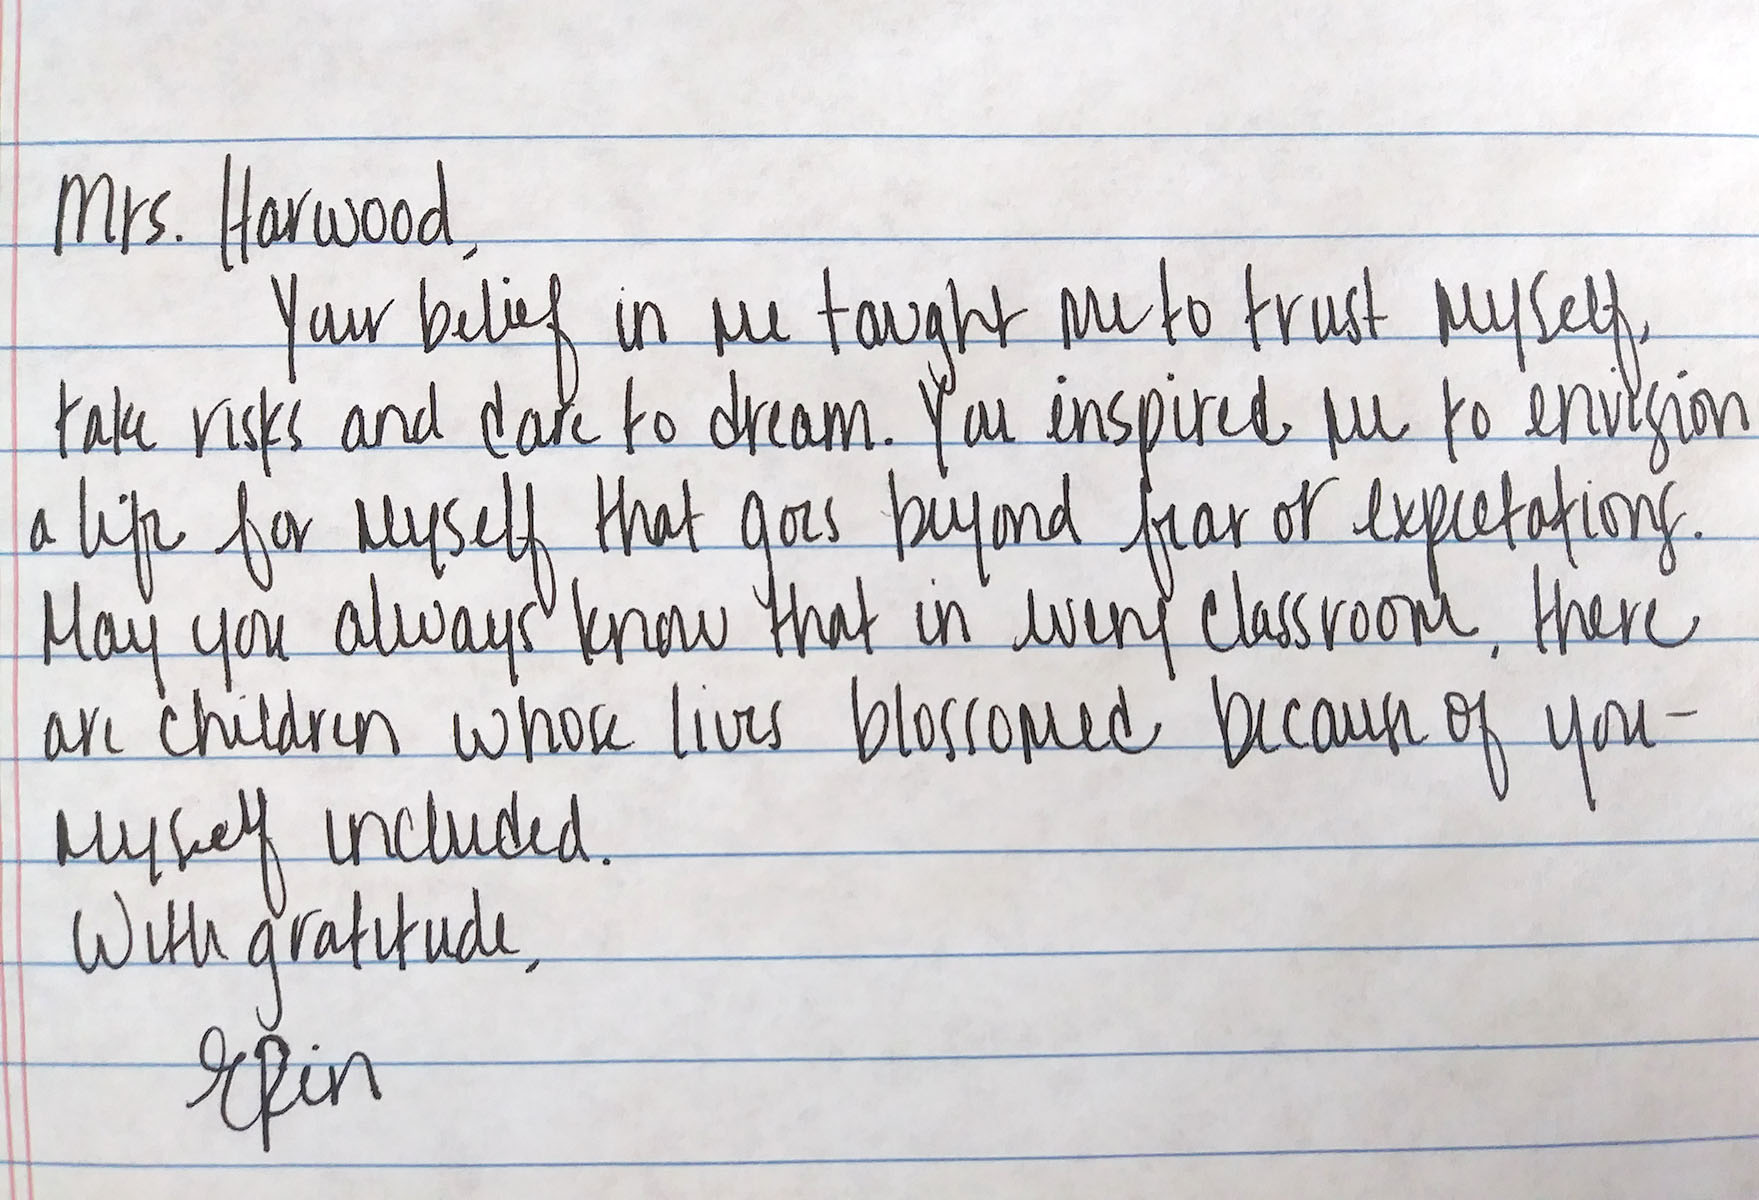 Mrs. Harwood,
Your belief in me taught me to trust myself,
take risks and dare to dream. You inspired me to envision
a life for myself that goes beyond fear or expectations.
May you always know that in every classroom, there
are children whose lives blossomed because of you-
myself included.
With gratitude,
Erin